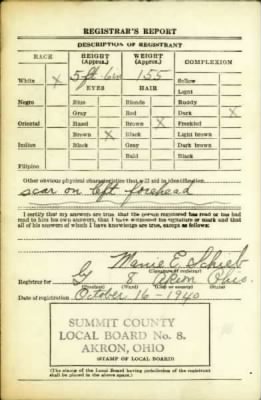 REGISTRAR'S REPORT
DESCRIPTION OF REGISTRANT
RACE HEIGHT (Approx.) WEIGHT (Approx.) COMPLEXION
White X 5 ft 155 Sallow
EYES HAIR Light
Negro Blue Blonde Ruddy
Gray Red Dark X
Oriental Hazel Brown X Freckled
Brown X Black Light brown
Indian Black Gray Dark brown
Bald Black
Filipino
Other obvious physical characteristics that will aid in identification
scar on left forehead
I certify that my answers are true; that the person registered has read or has had
read to him his own answers; that I have witnessed his signature or mark and that
all of his answers of which I have knowledge are true, except as follows:
Mamie E. Schieb
(Signature of registrar)
Registrar for G 8 Akron Ohio
(Precinct) (Ward) (City or county) (State)
Date of registration October 16-1940
SUMMIT COUNTY
LOCAL BOARD No. 8.
AKRON, OHIO
(STAMP OF LOCAL BOARD)
(The stamp of the Local Board having jurisdiction of the registrant
shall be placed in the above space.)